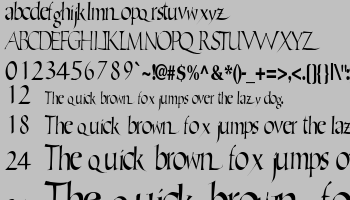 abcdefghijklmn opqrstuvwxyz
ABCDEFGHIJKLMNOPQRSTUVWXYZ
0123456789`~!@#$%^&*()-_+=>,<.[]{}|\":
12 The quick brown fox jumps over the lazy dog.
18 The quick brown fox jumps over the laz
24 The quick brown fox jumps o
The quick brown fo